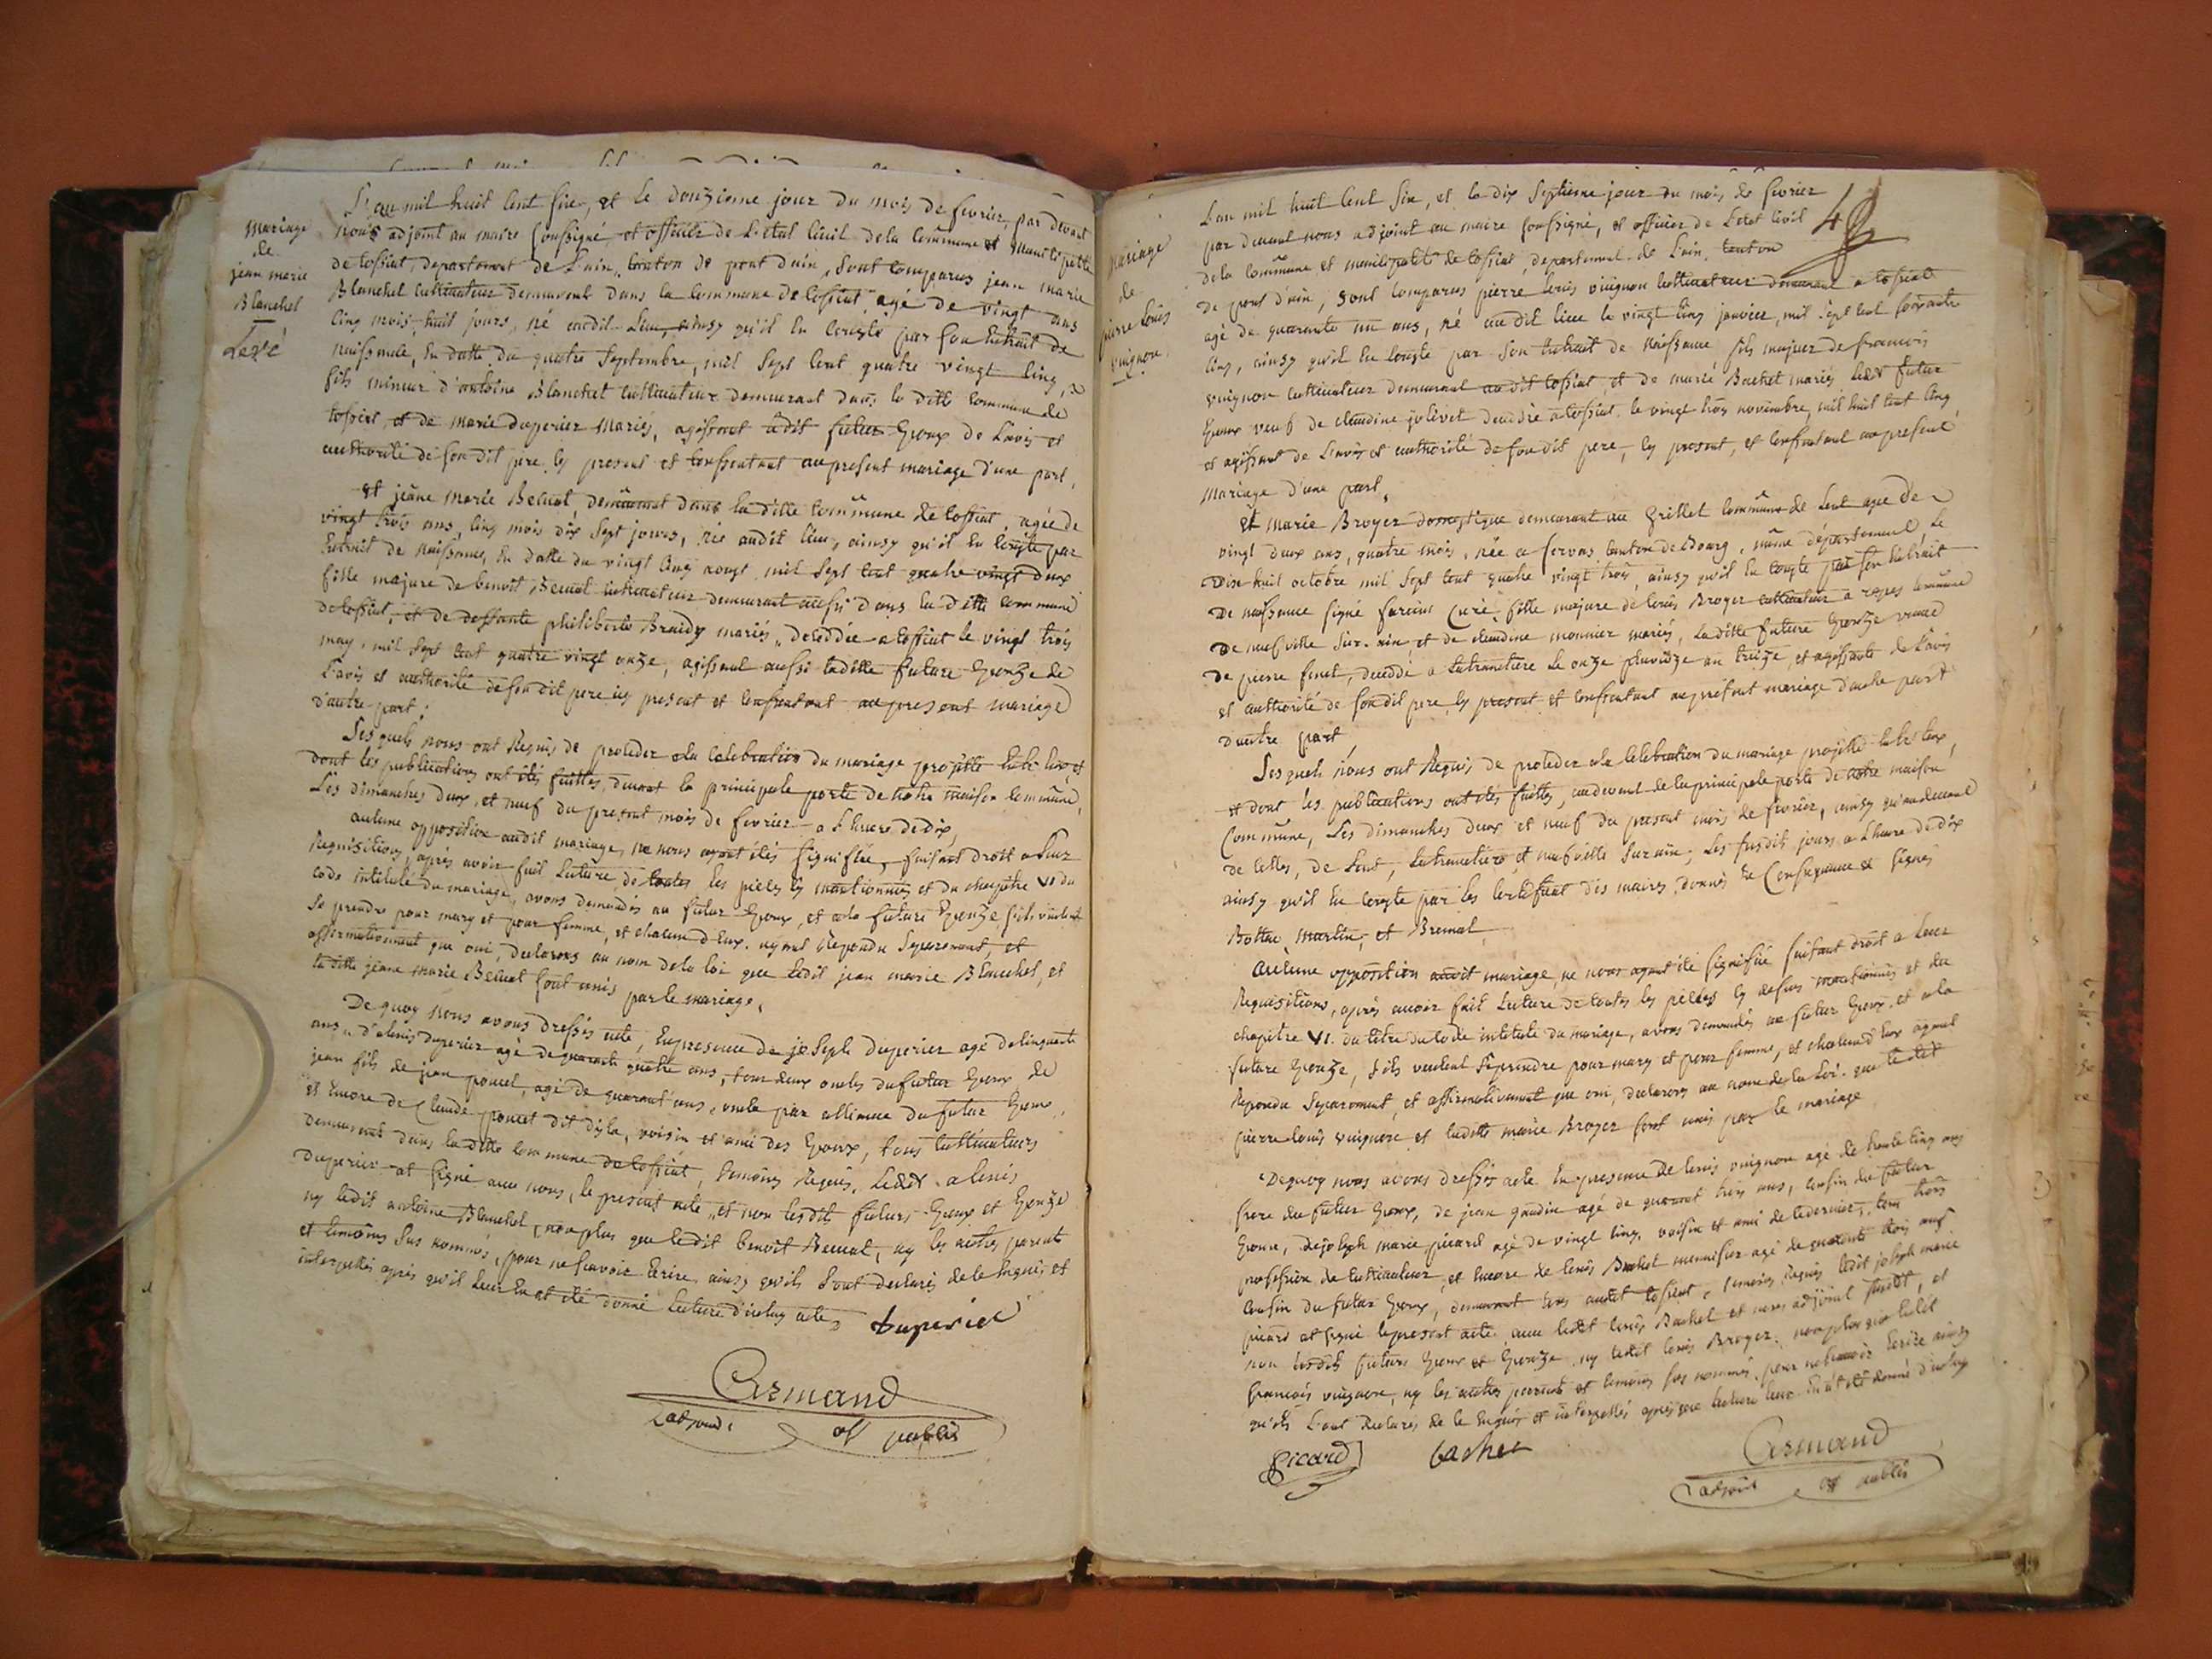 mariage
de
jean marie
Blanchet
L'an mil huit cent six, et le douzieme jour du mois de fevrier, par devant
nous adjoint au maire soussigné et officier de l'état civil de la commune et municipalité
de tossiat, departement de l'ain, canton de pont d'ain, sont comparus jean marie
Blanchet cultivateur demeurant dans la commune de tossiat agé de vingt ans
cinq mois huit jours, né audit lieu, ainsy qu'il en conste par son extrait de
naissance, en datte du quatre septembre, mil sept cent quatre vingt cinq,
fils mineur d'antoine Blanchet cultivateur demeurant dans la ditte commune de
tossiat, et de marie duperier mariés, agissant ledit futur Epoux de l'avis et
authorité de son dit pere icy present et consentant au present mariage d'une part,
et jeane marie Beluat, demeurant dans la ditte commune de tossiat, agée de
vingt trois ans cinq mois dix sept jours, née audit lieu, ainsy qu'il en conste par
Extrait de naissance, en datte du vingt cinq aoust mil sept cent quatre vingt deux
fille majeure de benoit Beluat cultivateur demeurant aussi dans la ditte commune
de tossiat, et de deffunte philiberte Braidy mariés, decedée a tossiat le vingt trois
may, mil sept cent quatre vingt onze, agissant aussi laditte future Epouze de
l'avis et authorité de son dit pere icy present et consentant au present mariage
d'autre part.
Lesquels nous ont Requis de proceder a la celebration du mariage projetté entr'eux et
dont les publications ont étés faittes, devant la principale porte de notre maison commune,
les dimanches deux, et neuf du present mois de fevrier a l'heure de dix,
aucune opposition audit mariage, ne nous ayant étés signifiée, faisant droit a leur
Requisitions, après avoir fait lecture de toutes les pieces icy mentionnés et du chapitre VI du
code intitulé du mariage, avons demandés au futur Epoux, et a la future Epouze s'ils veulent
se prendre pour mary et pour femme, et chacun d'Eux ayant Repondu separement, et
affirmativement que oui, declarons au nom de la loi que ledit jean marie Blanchet, et
laditte jeane marie Beluat sont unis par le mariage,
De quoy nous avons dressés acte, En presence de joseph duperier agé de cinquante
ans, d'alexis duperier agé de quarante quatre ans, tous deux oncles du futur Epoux de
jean fils de jean poncet, agé de quarant ans, oncle par alliance du futur Epoux,
et encore de Claude poncet dit voisin et ami des Epoux, tous cultivateurs
demeurants dans la ditte commune de tossiat, temoins Requis, ledit alexis
duperier at signé avec nous, le present acte, et non lesdits futurs Epoux et Epouze
ny ledit antoine Blanchet, non plus que ledit benoit Beluat, ny les autres parents
et temoins sus nommés, pour ne scavoir Ecrire ainsy qu'ils l'ont declarés de le Enquis et
interpellés après qu'il leur en at été donné lecture d'icelluy acte, duperier
Armand
adjoint off public
mariage
de
pierre Louis
vuignon
L'an mil huit cent six, et le dix septieme jour du mois de fevrier
par devant nous adjoint au maire soussigné, et officier de l'etat civil
de la commune et municipalité de tossiat, departement de l'ain, canton
de pont d'ain, sont comparus pierre Louis vuignon cultivateur demeurant a tossiat
agé de quarante un ans, né audit lieu le vingt cinq janvier, mil sept cent soixante
cinq, ainsy qu'il en conste par son Extrait de Naissance fils majeur de francois
vuignon cultivateur demeurant audit tossiat, et de marie Bachet mariés ledit futur
Epoux veuf de claudine jolivet decedée a tossiat le vingt trois novembre, mil huit cent cinq
et agissant de l'avis et authorité de son dit pere, icy present, et consentant au present
Mariage d'une part,
Et marie Broyer domestique demeurant au Grillet commune de Lent agée de
vingt deux ans, quatre mois, née a servas canton de Bourg, même département, le
Dix huit octobre mil sept cent quatre vingt trois ainsy qu'il en conste par son Extrait
De naissance signé Curé, fille majeure de Louis Broyer cultivateur a commune
de neufville sur ain, et de claudine monnier mariés, laditte future Epouze veuve
De pierre decedé a le onze pluviôze an treize, et agissante de l'avis
et authorité de son dit pere, icy present et consentant au present mariage d'autre part
d'autre part
Lesquels nous ont Requis de proceder a la Celebration du mariage projetté entr'eux,
et dont les publications ont étés faittes, au devant de la principale porte de notre maison
Commune, les dimanches deux et neuf du present mois de fevrier, ainsy qu'au devant
de celles, de Lent, et neufville sur ain, les susdits jours a l'heure de dix
ainsy qu'il en conste par les certifficat des maires donnés en Consequence et signés
martin, et
Aucune opposition audit mariage, ne nous ayant été signifiée faisant droit a leur
Requisitions, après avoir fait lecture de toutes les pièces icy dessus mentionnés et du
chapitre VI. du titre du code intitulé du mariage, avons demandés au futur Epoux, et a la
future Epouze, s'ils veulent se prendre pour mary et pour femme, et chacun d'Eux ayant
Repondu separement, et affirmativement que oui, declarons au nom de la loi que ledit
pierre louis vuignon et laditte marie Broyer sont unis par le mariage
De quoy nous avons dressés acte En presence de Louis vuignon agé de trente cinq ans
frere du futur Epoux, de jean gaudin agé de quarant trois ans, cousin du futur
Epoux, de joseph marie picard agé de vingt cinq, voisin et ami de ce dernier, tous trois
profession de cultivateur, et encore de Louis Bachet menuisier agé de quarante trois ans
cousin du futur Epoux, demeurant tous audit tossiat, temoins Requis ledit joseph marie
picard at signé le present acte avec ledit Louis Bachet et nous adjoint susdit, et
non lesdits futurs Epoux et Epouze ny ledit Louis Broyer, non plus que ledit
francois vuignon, ny les autres parents et temoins sus nommés, pour ne scavoir Ecrire ainsy
qu'ils l'ont declarés de le Enquis et interpellés après que lecture leur En at été donné d'icelluy
picard bachet Armand
adjoint off public